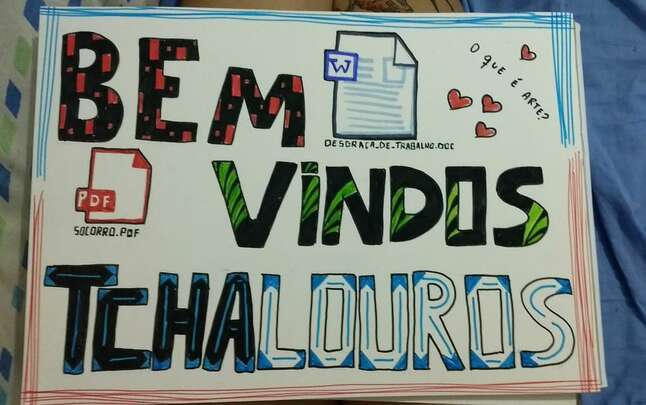 BEM
W
DESGRAÇA_DE_TRABALHO.DOC
O QUE É ARTE?
PDF
SOCORRO.PDF
VINDOS
TCHALOUROS